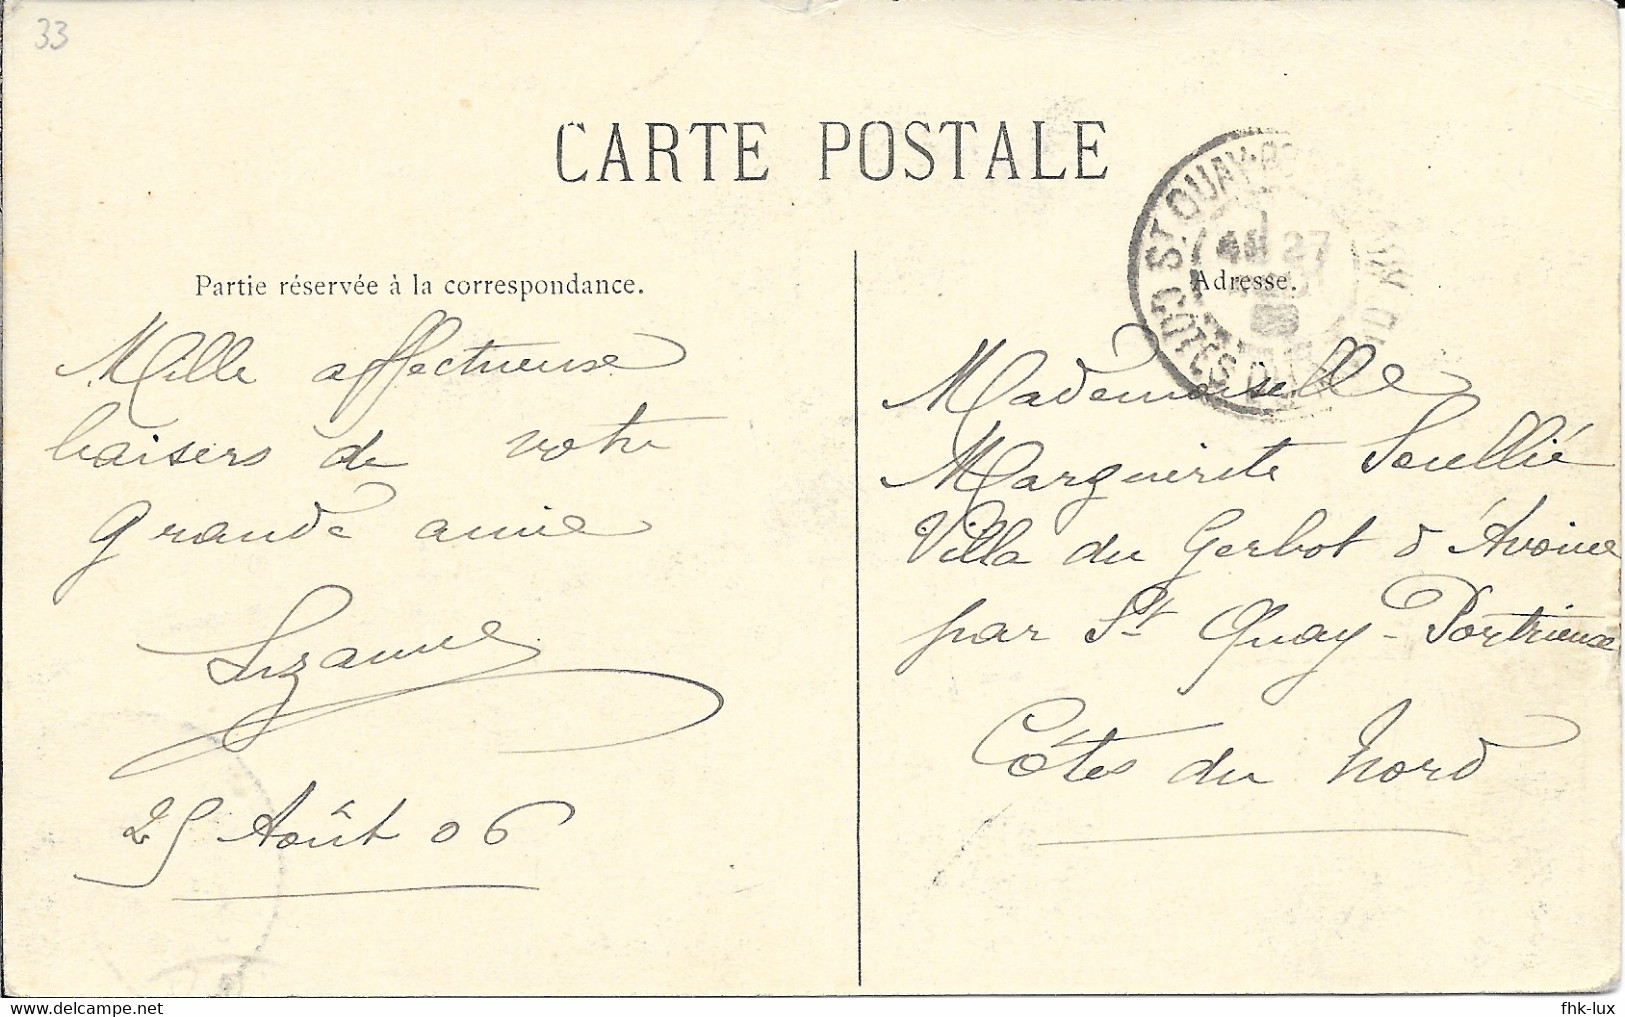 33
CARTE POSTALE
Partie réservée à la correspondance.
Mille affectueuse
baisers de votre
Grande amie
Suzanne
25 Août 06
ST QUAY-PORTRIEUX
27
COTES DU NORD
Adresse.
Mademoiselle
Marguerite
Villa du Gerbot d'Avoine
par St Quay-Portrieux
Côtes du Nord
www.delcampe.net
fhk-lux